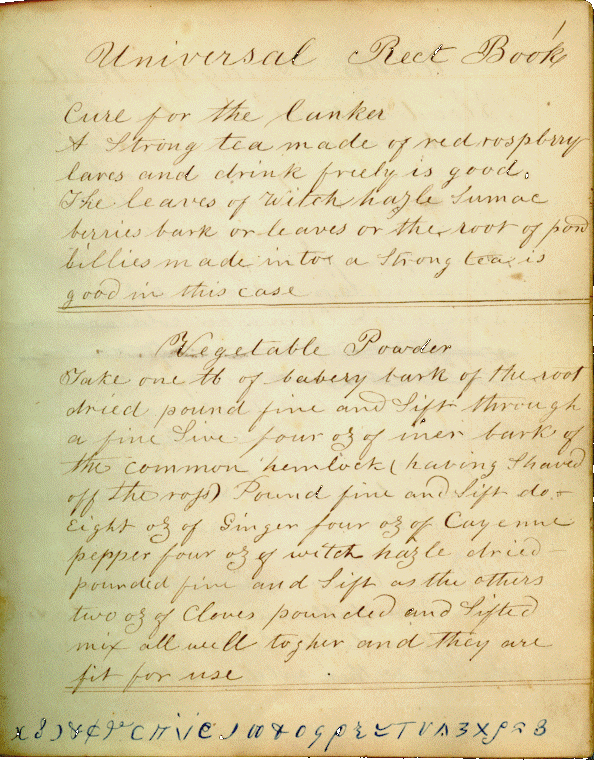 1
Universal Rect Book
Cure for the Canker
A Strong tea made of red rospbrry
laves and drink freely is good.
The leaves of Witch hazle Sumac
berries bark or leaves or the root of pond
lillies made into a Strong tea is
good in this case
Vegetable Powder
Take one lb of babery bark of the root
dried pound fine and Sift through
a fine Sive four oz of iner bark of
the common hemlock (having Shaved
off the ross) Pound fine and Sift do.
Eight oz of Ginger four oz of Cayenne
pepper four oz of witch hazle dried
pounded fine and Sift as the others
two oz of Cloves pounded and Sifted
mix all well togher and they are
fit for use